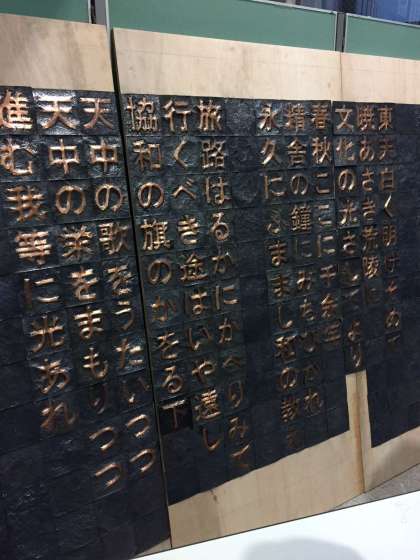 東天白く明けそめて
暁あさき荒陵に
文化の光さしてより
春秋ここに千余年
精舎の鐘にみちびかれ
永久にふままし和の教を
旅路はるかにかへりみて
行くべき途はいや遠し
協和の旗のかをる下
天中の歌をうたいつつ
天中の栄をまもりつつ
進む我等に光あれ